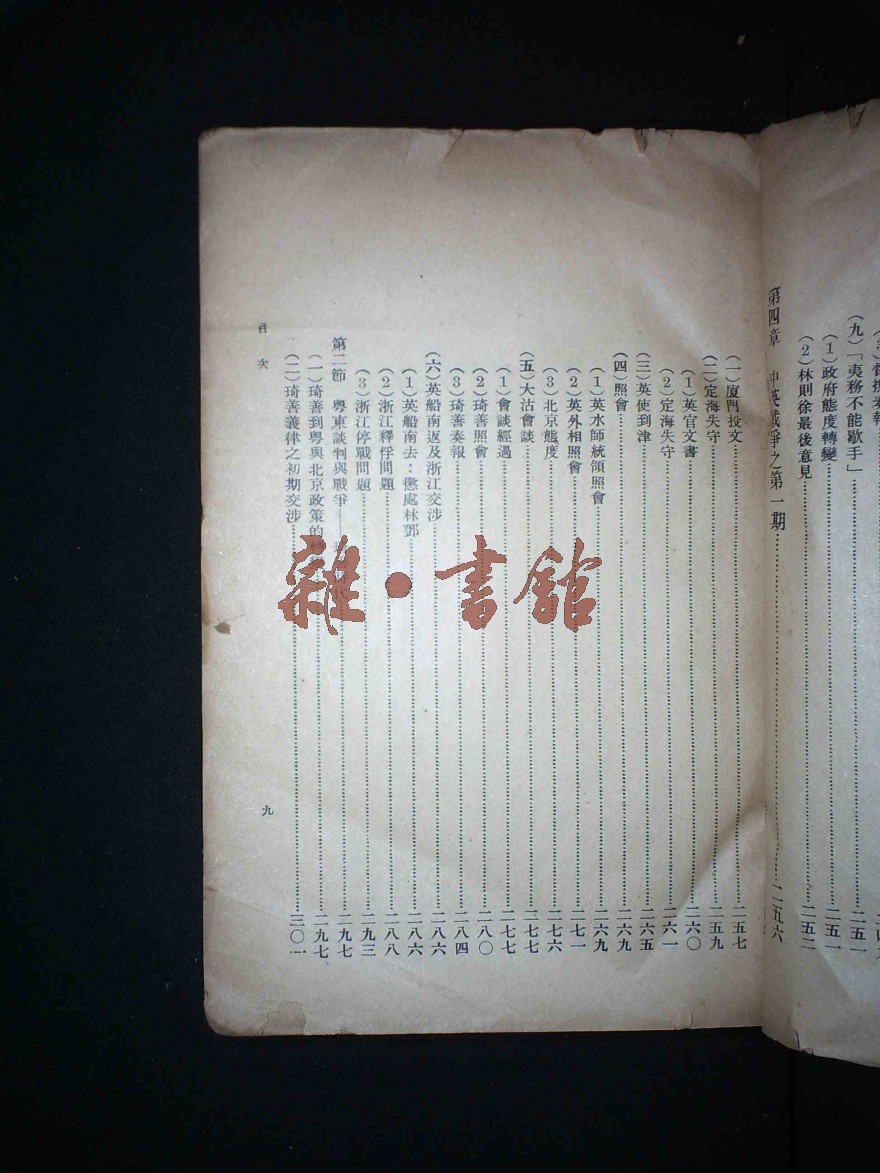 (九)「夷務不能歇手」……二五一
(1)政府態度轉變……二五一
(2)林則徐最後意見……二五二
第四章 中英戰爭之第一期……二五六
(一)廈門投文……二五七
(二)定海失守……二五九
(1)英官文書……二六〇
(2)定海失守……二六一
(三)英使到津……二六五
(四)照會……二六九
(1)英水師統領照會……二六九
(2)英外相照會……二七一
(3)北京態度……二七六
(五)大沽會談……二七七
(1)會談經過……二七七
(2)琦善照會……二八〇
(3)琦善奏報……二八四
(六)英船南返及浙江交涉……二八六
(1)英船南去:懲處林鄧……二八六
(2)浙江釋俘問題……二八八
(3)浙江停戰問題……二九三
第二節 粵東談判與戰爭……二九七
(一)琦善到粵與北京政策的……二九七
(二)琦善義律之初期交涉……三〇一
目次
九
雜·書館